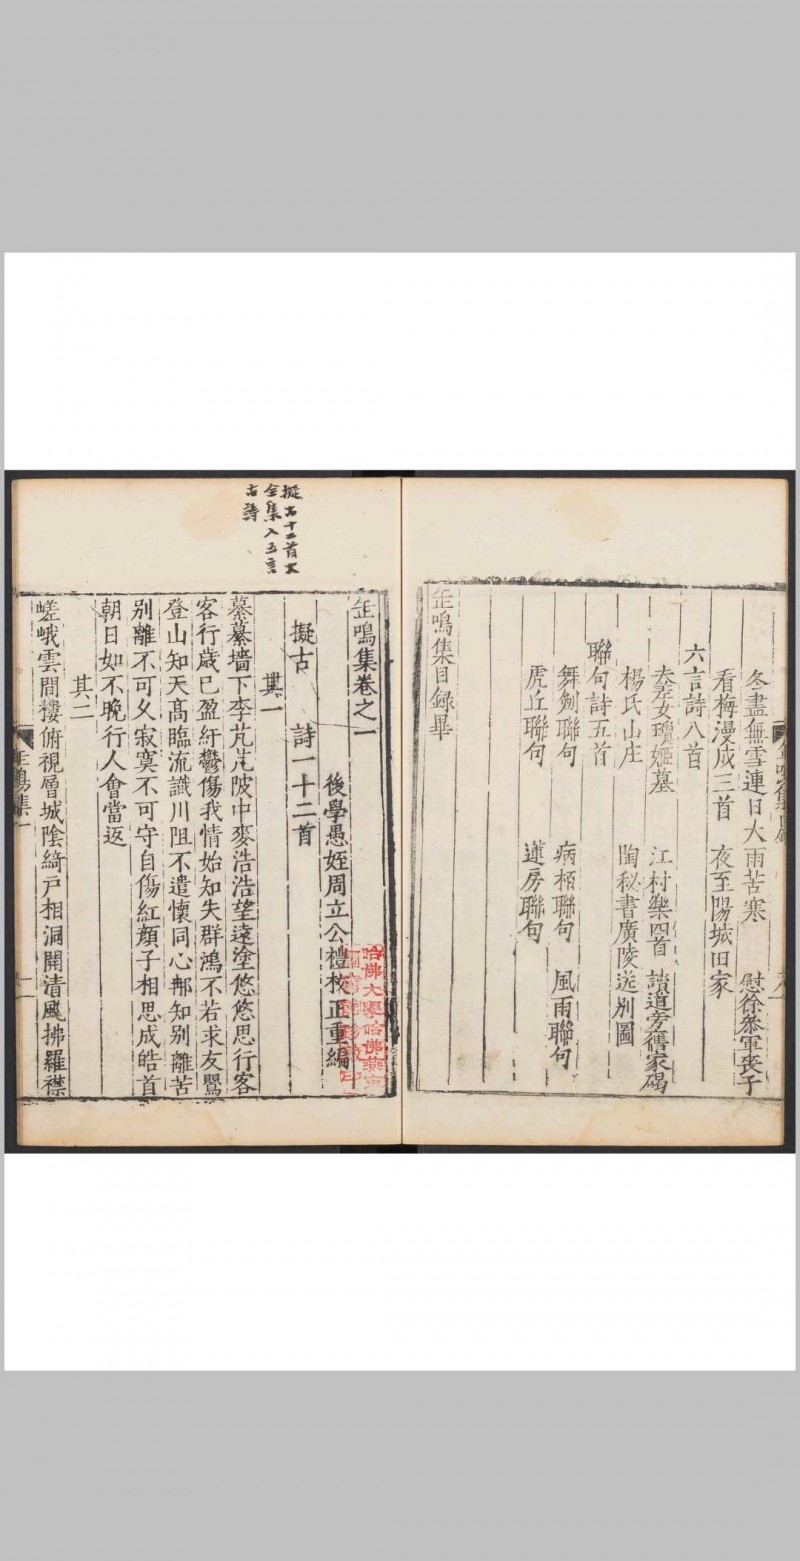 冬盡無雪連日大雨苦寒　慰徐叅軍喪子
看梅漫成三首　夜至陽城田家
六言詩八首
夫差女瓊姬墓　江村樂四首　讀道旁舊家碣
楊氏山庄　陶秘書廣陵送别圖
聯句詩五首
舞劍聯句　病栢聯句　風雨聯句
虎丘聯句　蓮房聯句
缶鳴集目録畢
擬古十二首大
全集入五言
古詩
缶鳴集卷之一
後學愚姪周立公禮校正重編
擬古　詩一十二首
其一
纂纂墻下李芃芃陂中麥浩浩望遠塗悠悠思行客
客行歳已盈紆鬱傷我情始知失群鴻不若求友鸎
登山知天髙臨流識川阻不遣懷同心那知别離苦
别離不可乆寂寞不可守自傷紅顔子相思成皓首
朝日如不晚行人會當返
其二
嵯峨雲間樓俯視層城陰綺戶相洞開清飈拂羅襟
缶鳴集一
哈佛大學哈佛燕京